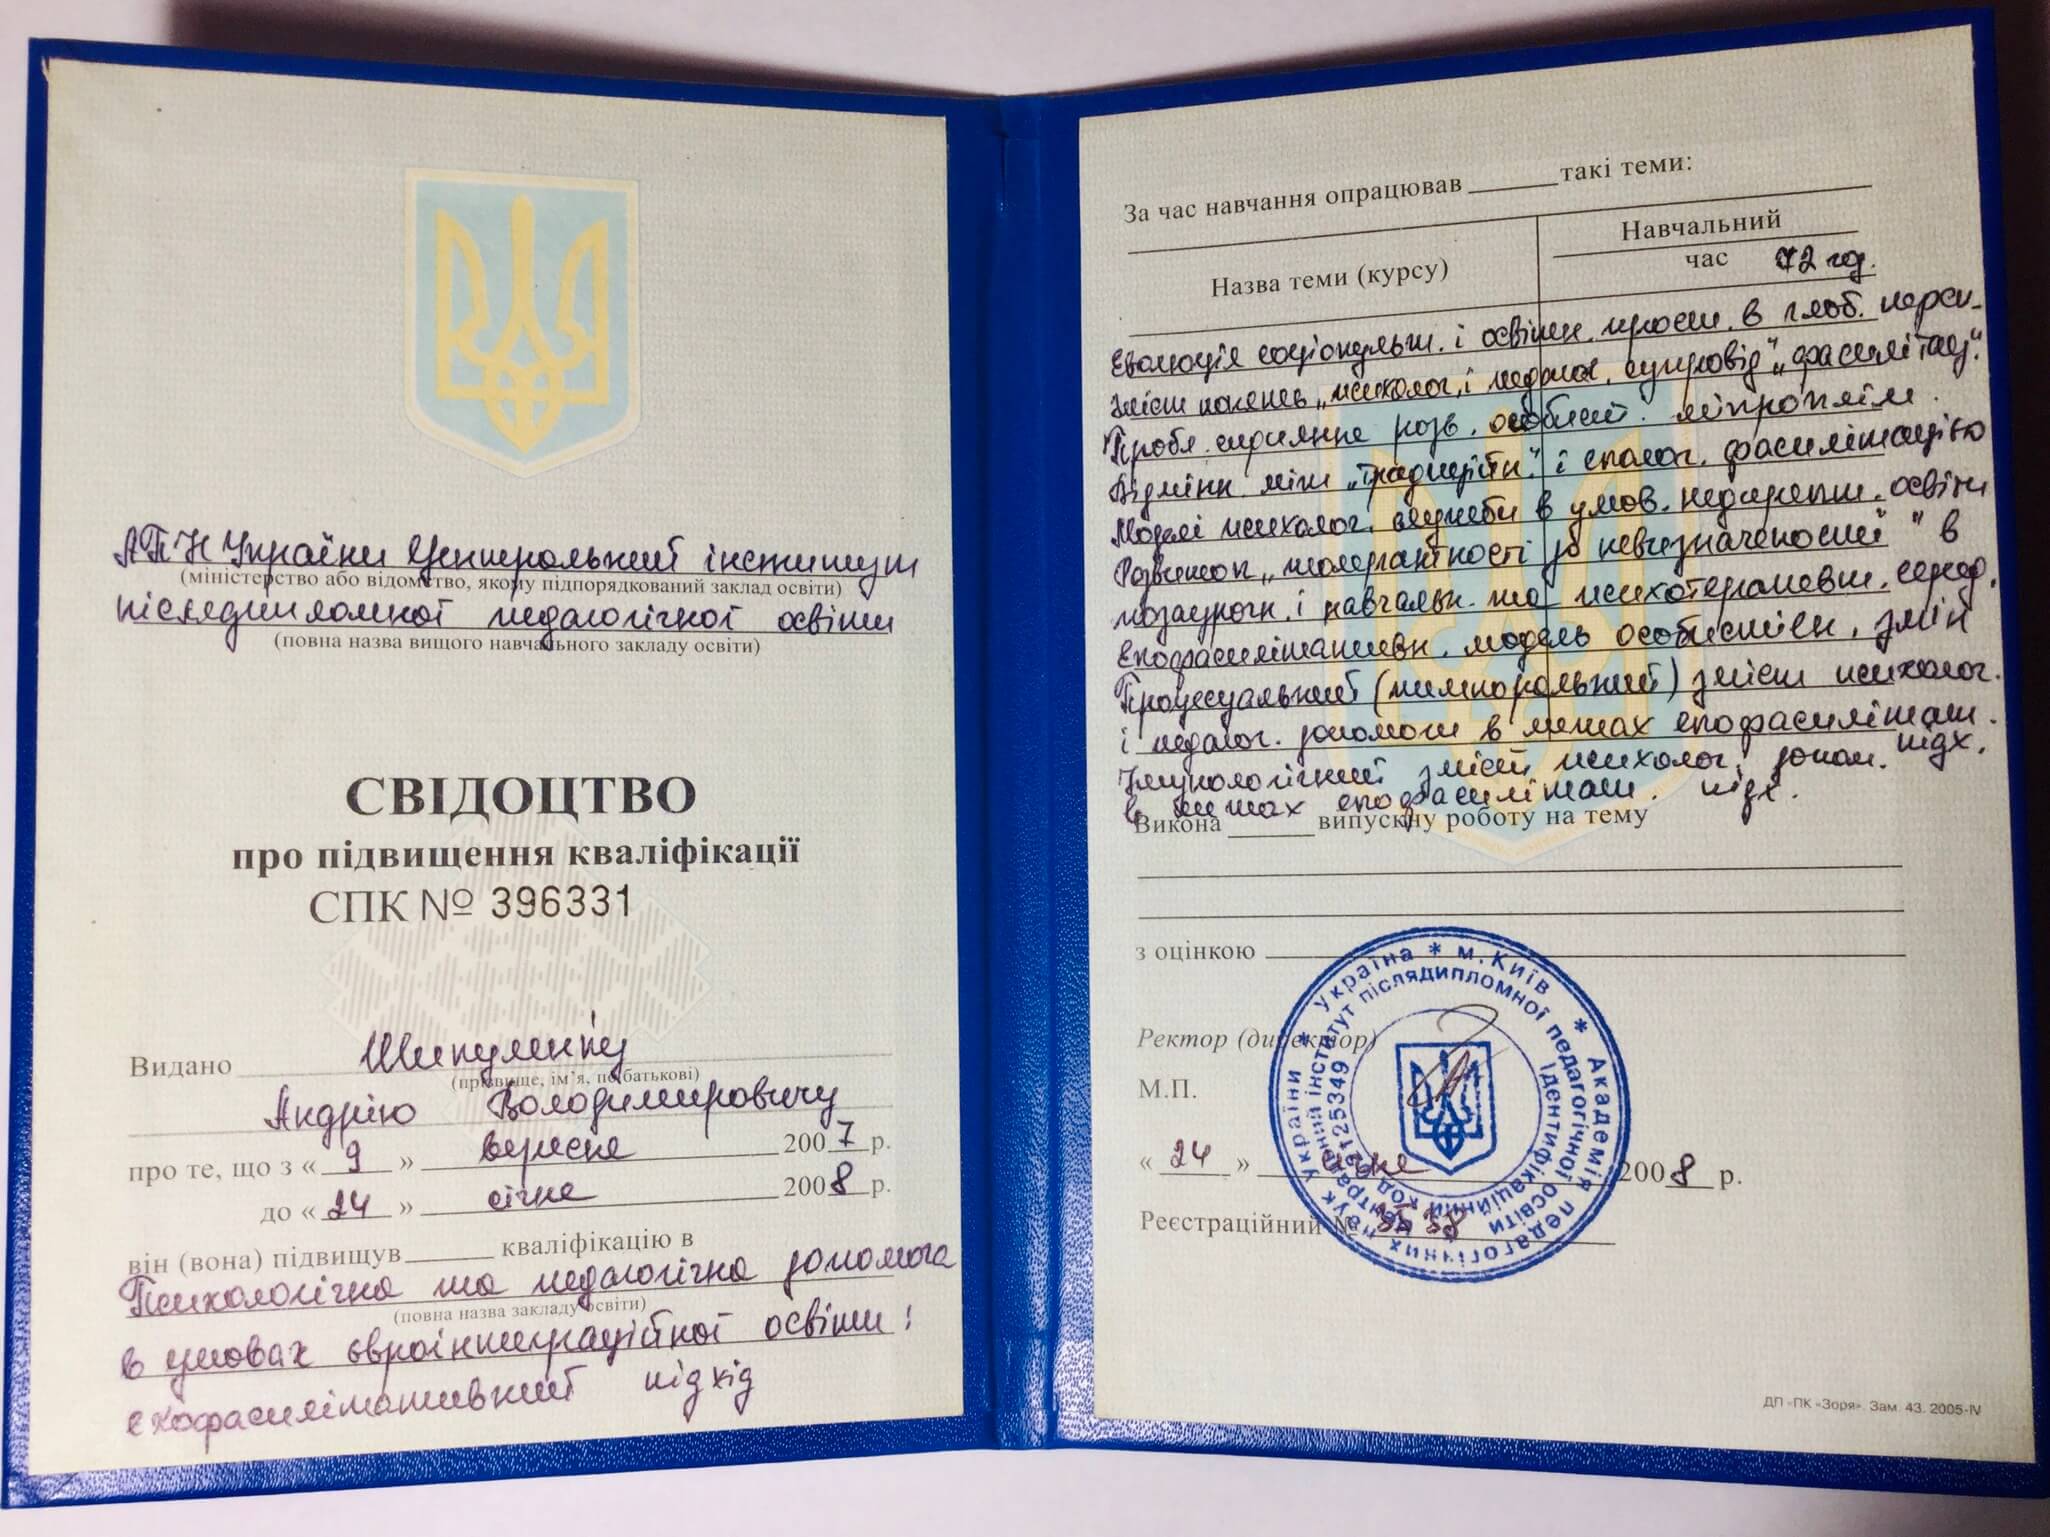 АПН України Центральний інститут
(міністерство або відомство, якому підпорядкований заклад освіти)
післядипломної педагогічної освіти
(повна назва вищого навчального закладу освіти)
СВІДОЦТВО
про підвищення кваліфікації
СПК № 396331
Видано
(прізвище, ім'я, по батькові)
Андрію Володимировичу
про те, що з « 9 » вересня 2007 р.
до « 24 » січня 2008 р.
він (вона) підвищув кваліфікацію в
Психологічна та педагогічна допомога
(повна назва закладу освіти)
в умовах євроінтеграційної освіти:
екофасилітативний підхід
За час навчання опрацював такі теми:
Назва теми (курсу)
Навчальний
час 72 год.
Еволюція і освітн. в глоб.
Зміст понять „психолог. і педагог. супровід" „фасилітац."
Пробл. сприяння розв. особист.
Відмінн. між „традиційн." і фасилітацією
Моделі психолог. служби в умов. недирект. освіти
Розвиток „толерантності до невизначеності" в
позаурочн. і навчальн. та психотерапевт. серед.
Екофасилітативн. модель особистісн. змін
Процесуальний (темпоральний) зміст психолог.
і педагог. допомоги в межах екофасилітат.
підх.
зміст психолог. допом.
в межах екофасилітат. підх.
Викона випускну роботу на тему
з оцінкою
Ректор (директор)
М.П.
« 24 » січня 2008 р.
Реєстраційний №
Україна * м. Київ * Академія педагогічних наук України *
Центральний інститут післядипломної педагогічної освіти
Ідентифікаційний код
ДП «ПК «Зоря». Зам. 43. 2005-IV